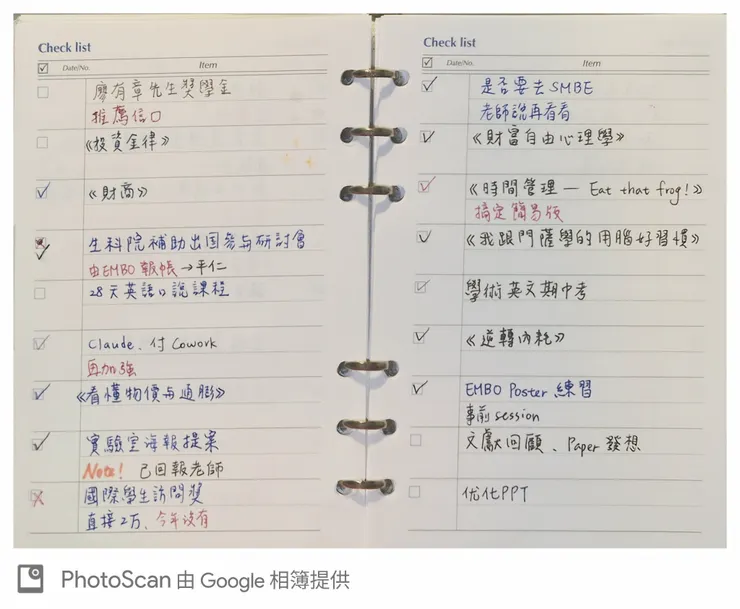 Check list
Date/No. Item
廖有章先生獎學金
推薦信口
《投資金律》
《財商》
生科院補助出国參与研討會
由EMBO報帳→平仁
28天英語口說課程
Claude、付Cowork
再加強
《看懂物價与通膨》
實驗室海報提案
Note! 已回報老師
國際學生訪問獎
直接2万、今年沒有
Check list
Date/No. Item
是否要去SMBE
老師說再看看
《財富自由心理學》
《時間管理 — Eat that frog!》
搞定簡易版
《我跟門薩學的用腦好習慣》
學術英文期中考
《逆轉內耗》
EMBO Poster 練習
事前 session
文獻回顧、Paper 發想
优化PPT
PhotoScan 由 Google 相簿提供